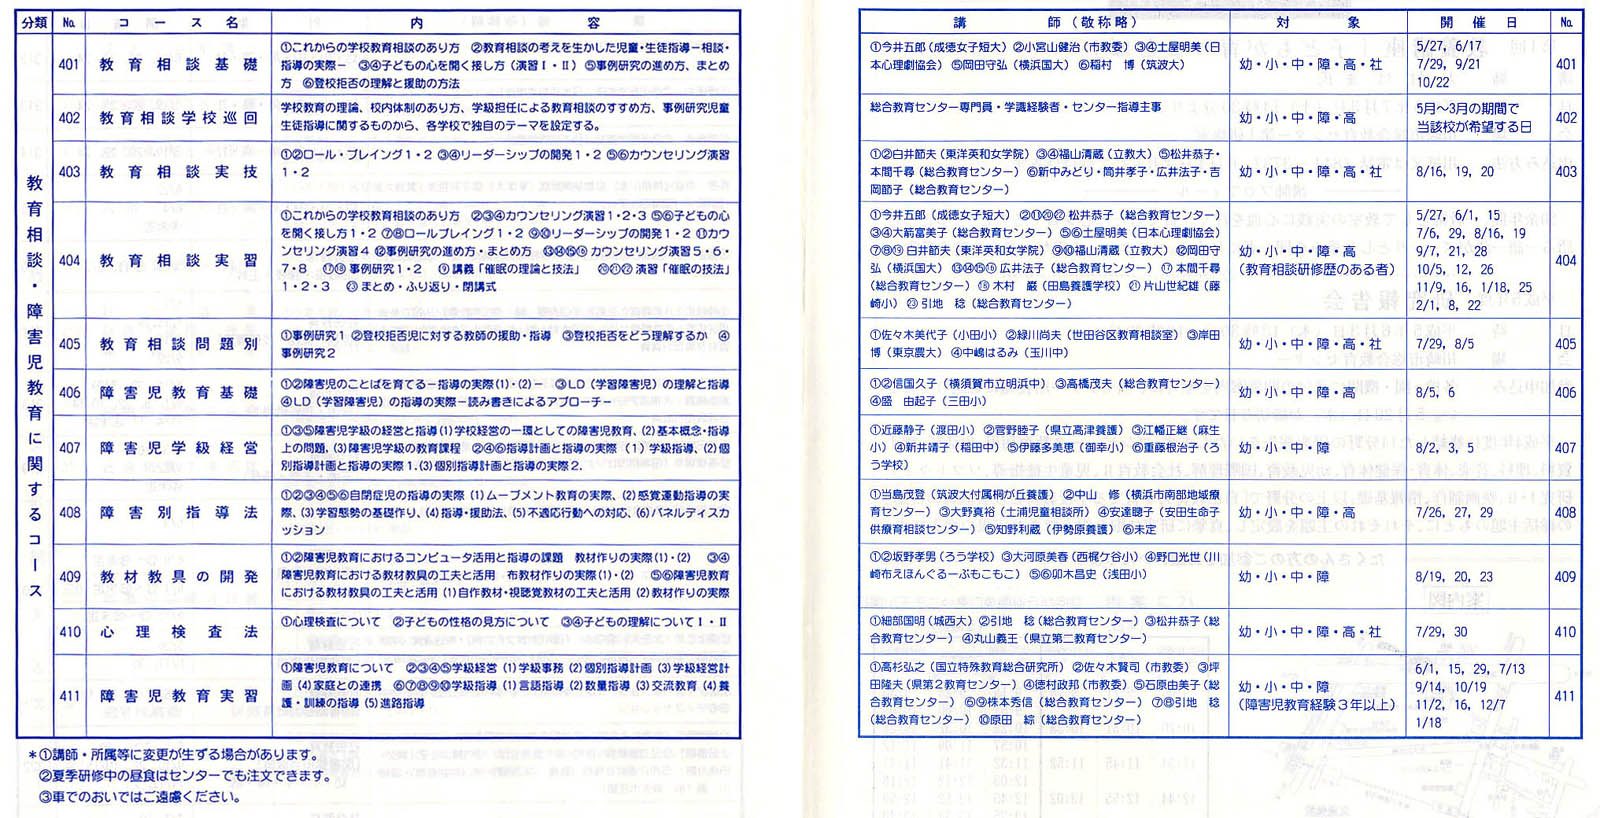 分類 No. コース名 内容
教育相談・障害児教育に関するコース
401 教育相談基礎
①これからの学校教育相談のあり方 ②教育相談の考えを生かした児童・生徒指導－相談・
指導の実際－ ③④子どもの心を開く接し方（演習Ⅰ・Ⅱ） ⑤事例研究の進め方、まとめ
方 ⑥登校拒否の理解と援助の方法
402 教育相談学校巡回
学校教育の理論、校内体制のあり方、学級担任による教育相談のすすめ方、事例研究児童
生徒指導に関するものから、各学校で独自のテーマを設定する。
403 教育相談実技
①②ロール・プレイング１・２ ③④リーダーシップの開発１・２ ⑤⑥カウンセリング演習
１・２
404 教育相談実習
①これからの学校教育相談のあり方 ②③④カウンセリング演習１・２・３ ⑤⑥子どもの心
を開く接し方１・２ ⑦⑧ロールプレイング１・２ ⑨⑩リーダーシップの開発１・２ ⑪カウ
ンセリング演習４ ⑫事例研究の進め方・まとめ方 ⑬⑭⑮⑯カウンセリング演習５・６・
７・８ ⑰⑱事例研究１・２ ⑲講義「催眠の理論と技法」 ⑳㉑㉒演習「催眠の技法」
１・２・３ ㉓まとめ・ふり返り・閉講式
405 教育相談問題別
①事例研究１ ②登校拒否児に対する教師の援助・指導 ③登校拒否をどう理解するか ④
事例研究２
406 障害児教育基礎
①②障害児のことばを育てる－指導の実際(1)・(2)－ ③ＬＤ（学習障害児）の理解と指導
④ＬＤ（学習障害児）の指導の実際－読み書きによるアプローチ－
407 障害児学級経営
①③⑤障害児学級の経営と指導(1)学校経営の一環としての障害児教育、(2)基本概念・指導
上の問題、(3)障害児学級の教育課程 ②④⑥指導計画と指導の実際（１）学級指導、(2)個
別指導計画と指導の実際１.(3)個別指導計画と指導の実際２.
408 障害別指導法
①②③④⑤⑥自閉症児の指導の実際(1)ムーブメント教育の実際、(2)感覚運動指導の実
際、(3)学習態勢の基礎作り、(4)指導・援助法、(5)不適応行動への対応、(6)パネルディスカ
ッション
409 教材教具の開発
①②障害児教育におけるコンピュータ活用と指導の課題 教材作りの実際(1)・(2) ③④
障害児教育における教材教具の工夫と活用 布教材作りの実際(1)・(2) ⑤⑥障害児教育
における教材教具の工夫と活用(1)自作教材・視聴覚教材の工夫と活用(2)教材作りの実際
410 心理検査法
①心理検査について ②子どもの性格の見方について ③④子どもの理解についてⅠ・Ⅱ
411 障害児教育実習
①障害児教育について ②③④⑤学級経営(1)学級事務(2)個別指導計画(3)学級経営計
画(4)家庭との連携 ⑥⑦⑧⑨⑩学級指導(1)言語指導(2)数量指導(3)交流教育(4)養
護・訓練の指導(5)進路指導
＊①講師・所属等に変更が生ずる場合があります。
②夏季研修中の昼食はセンターでも注文できます。
③車でのおいではご遠慮ください。
講師（敬称略） 対象 開催日 No.
①今井五郎（成徳女子短大）②小宮山健治（市教委）③④土屋明美（日
本心理劇協会）⑤岡田守弘（横浜国大）⑥稲村 博（筑波大）
幼・小・中・障・高・社
5/27, 6/17
7/29, 9/21
10/22
401
総合教育センター専門員・学識経験者・センター指導主事
幼・小・中・障・高
5月～3月の期間で
当該校が希望する日
402
①②白井節夫（東洋英和女学院）③④福山清蔵（立教大）⑤松井恭子・
本間千尋（総合教育センター）⑥新中みどり・筒井孝子・広井法子・吉
岡節子（総合教育センター）
幼・小・中・障・高・社
8/16, 19, 20
403
①今井五郎（成徳女子短大） ②⑪⑳㉒松井恭子（総合教育センター）
③④大箭富美子（総合教育センター）⑤⑥土屋明美（日本心理劇協会）
⑦⑧⑲白井節夫（東洋英和女学院）⑨⑩福山清蔵（立教大）⑫岡田守
弘（横浜国大）⑬⑭⑮⑯広井法子（総合教育センター）⑰本間千尋
（総合教育センター）⑱木村 巌（田島養護学校）㉑片山世紀雄（藤
崎小）㉓引地 稔（総合教育センター）
幼・小・中・障・高
（教育相談研修歴のある者）
5/27, 6/1, 15
7/6, 29, 8/16, 19
9/7, 21, 28
10/5, 12, 26
11/9, 16, 1/18, 25
2/1, 8, 22
404
①佐々木美代子（小田小）②緑川尚夫（世田谷区教育相談室）③岸田
博（東京農大）④中嶋はるみ（玉川中）
幼・小・中・障・高・社
7/29, 8/5
405
①②信国久子（横須賀市立明浜中）③高橋茂夫（総合教育センター）
④盛 由起子（三田小）
幼・小・中・障・高
8/5, 6
406
①近藤静子（渡田小）②菅野睦子（県立高津養護）③江幡正継（麻生
小）④新井靖子（稲田中）⑤伊藤多美恵（御幸小）⑥重藤根治子（ろ
う学校）
幼・小・中・障
8/2, 3, 5
407
①当島茂登（筑波大付属桐が丘養護）②中山 修（横浜市南部地域療
育センター）③大野真裕（土浦児童相談所）④安達聰子（安田生命子
供療育相談センター）⑤知野利蔵（伊勢原養護）⑥未定
幼・小・中・障・高
7/26, 27, 29
408
①②坂野孝男（ろう学校）③大河原美春（西梶ケ谷小）④野口光世（川
崎布えほんぐるーぷもこもこ）⑤⑥卯木昌史（浅田小）
幼・小・中・障
8/19, 20, 23
409
①細部国明（城西大）②引地 稔（総合教育センター）③松井恭子（総
合教育センター）④丸山義王（県立第二教育センター）
幼・小・中・障・高・社
7/29, 30
410
①高杉弘之（国立特殊教育総合研究所）②佐々木賢司（市教委）③坪
田隆夫（県第２教育センター）④徳村政邦（市教委）⑤石原由美子（総
合教育センター）⑥⑨株本秀信（総合教育センター）⑦⑧引地 稔
（総合教育センター）⑩原田 綜（総合教育センター）
幼・小・中・障
（障害児教育経験３年以上）
6/1, 15, 29, 7/13
9/14, 10/19
11/2, 16, 12/7
1/18
411